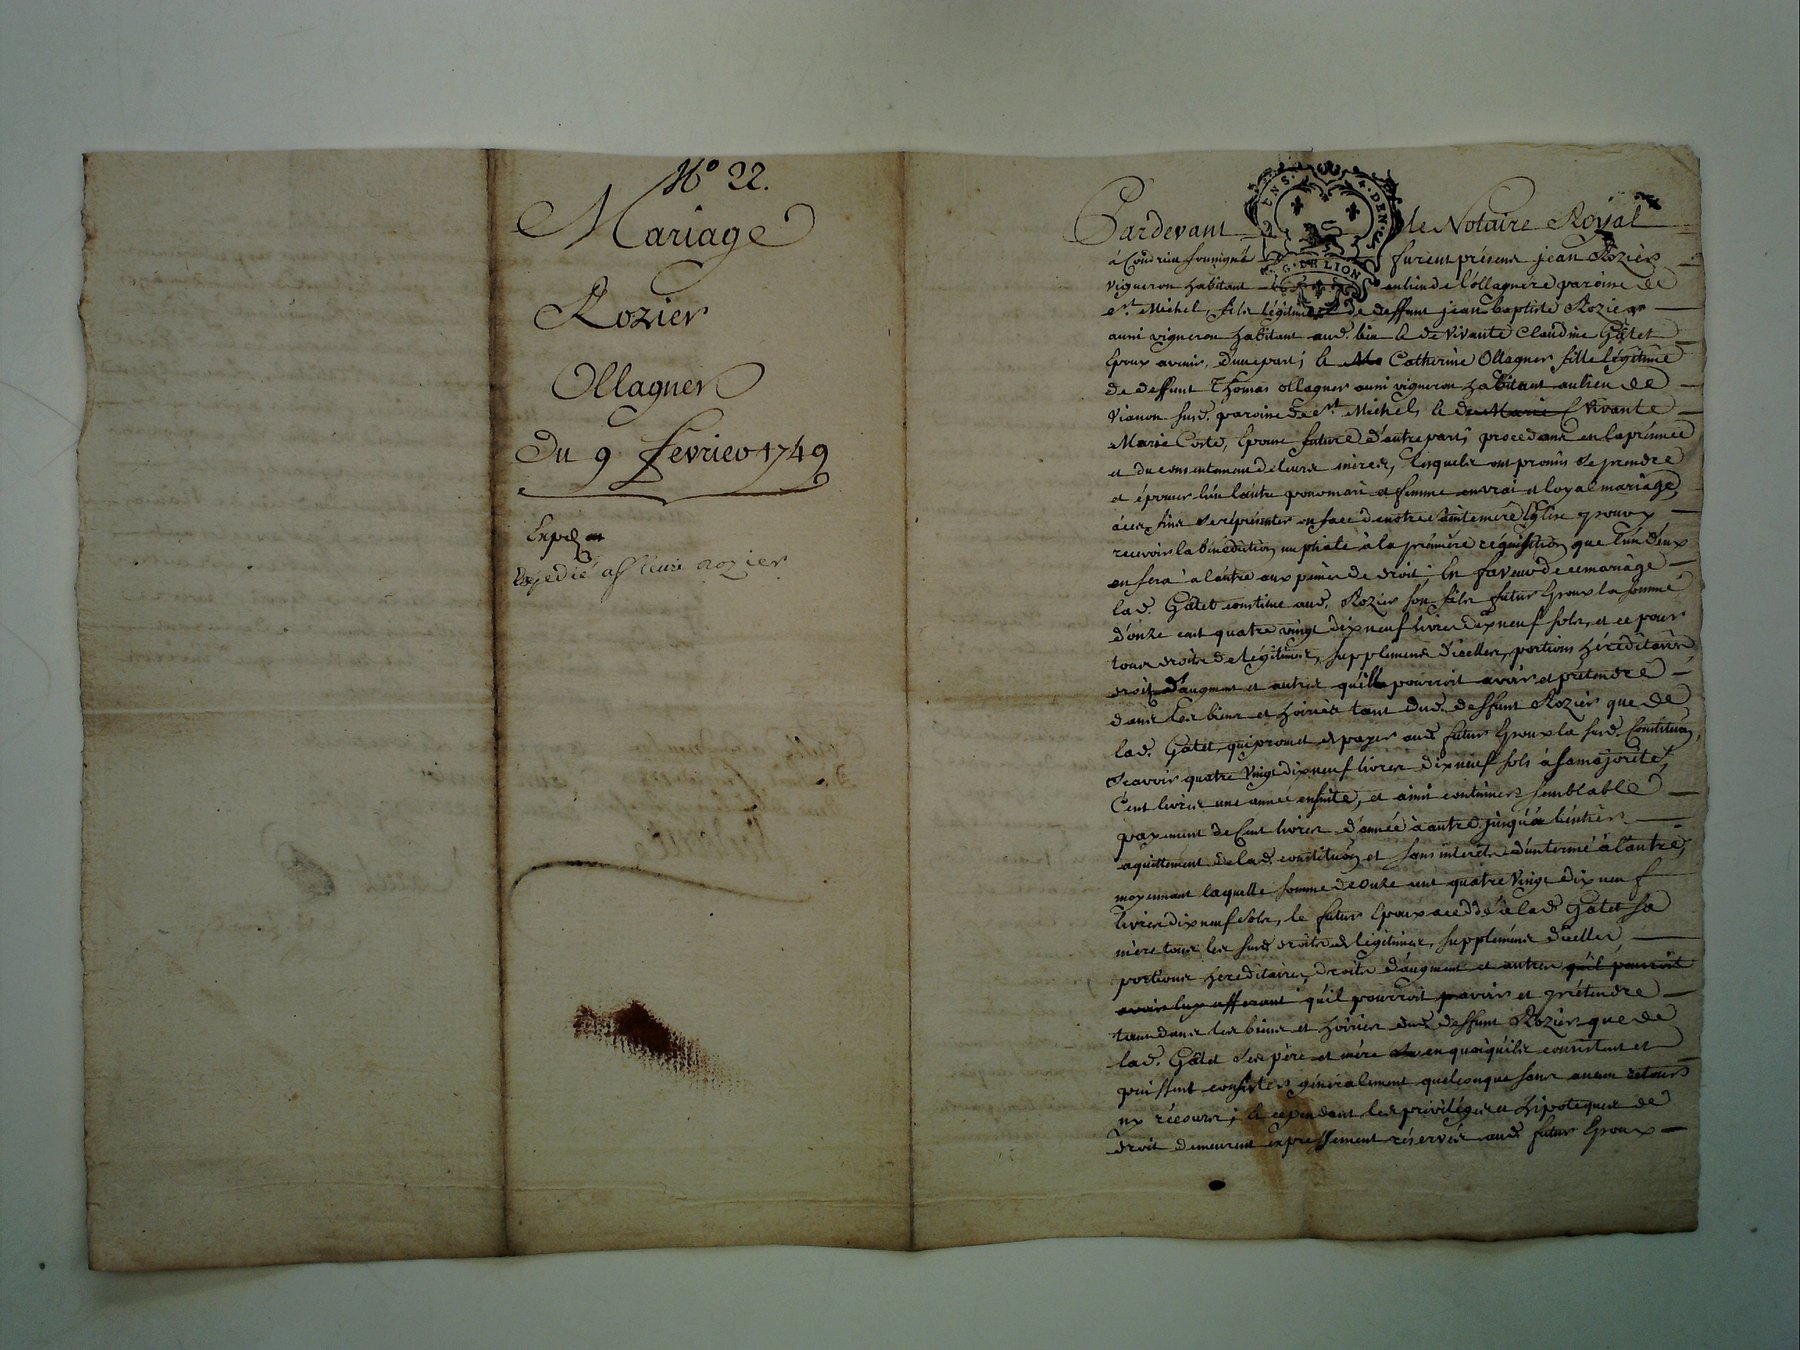 N° 22.
Mariage
Rozier
Ollagner
Du 9 fevrier 1749
Exped
Expedié a Rozier
Pardevant le Notaire Royal
à Condrieu soussigné furent présens jean Rozier
vigneron habitant au lieu de l'ollagnere paroisse de
St. Michel, fils légitime de deffunt jean baptiste Rozier
aussi vigneron habitant aud. lieu & de vivante Claudine Gâtet
Epoux avenir, d'une part; & Catherine Ollagner fille légitime
de deffunt Thomas ollagner aussi vigneron habitant au lieu de
Vianon susd. paroisse de St. Michel, & de Marie vivante
Marie Coste, Epouse future d'autre part; procedans en la présence
et du consentement de leurs mères, lesquels ont promis se prendre
et épouser l'un l'autre pour mari et femme en vrai et loyal mariage,
à ces fins se réprésenter en face de notre sainte mère Eglise pour y
recevoir la bénédiction nuptiale à la première réquisition que l'un d'eux
en fera à l'autre aux peines de droit; En faveur de ce mariage
lad. Gâtet constitue aud. Rozier son fils futur Epoux la somme
d'onze cent quatre vingt dix neuf livres dix neuf sols, et ce pour
tous droits de légitimes, supplemens d'icelles, portions héréditaires
droits d'augment et autres qu'il pourroit avoir et prétendre
dans les biens et hoiries tant dud. deffunt Rozier que de
lad. Gâtet, qui promet de payer aud. futur Epoux la susd. Constitution,
Scavoir quatre vingt dix neuf livres dix neuf sols à sa majorité,
Cent livres une année ensuite, et ainsi continuer semblable
payement de Cent livres d'année à autre jusqu'à l'entier
aquittement de lad. constitution et sans intérêts d'un terme à l'autre,
moyennant laquelle somme de onze cent quatre vingt dix neuf
livres dix neuf sols, le futur Epoux a cédé à lad. Gâtet sa
mère tous les susd. droits de légitimes, supplémens d'icelles,
portions héréditaires, droits d'augment et autres qu'il pourroit
avoir qu'il pourroit avoir et prétendre
tant dans les biens et hoiries dud. deffunt Rozier que de
lad. Gâtet ses père et mère en quoi qu'ils consistent et
puissent consister généralement quelconque sans aucun retour
ny récours; & cependant les privilèges et hipoteques de
droit demeurent expressement réservés aud. futur Epoux
G. DE LION